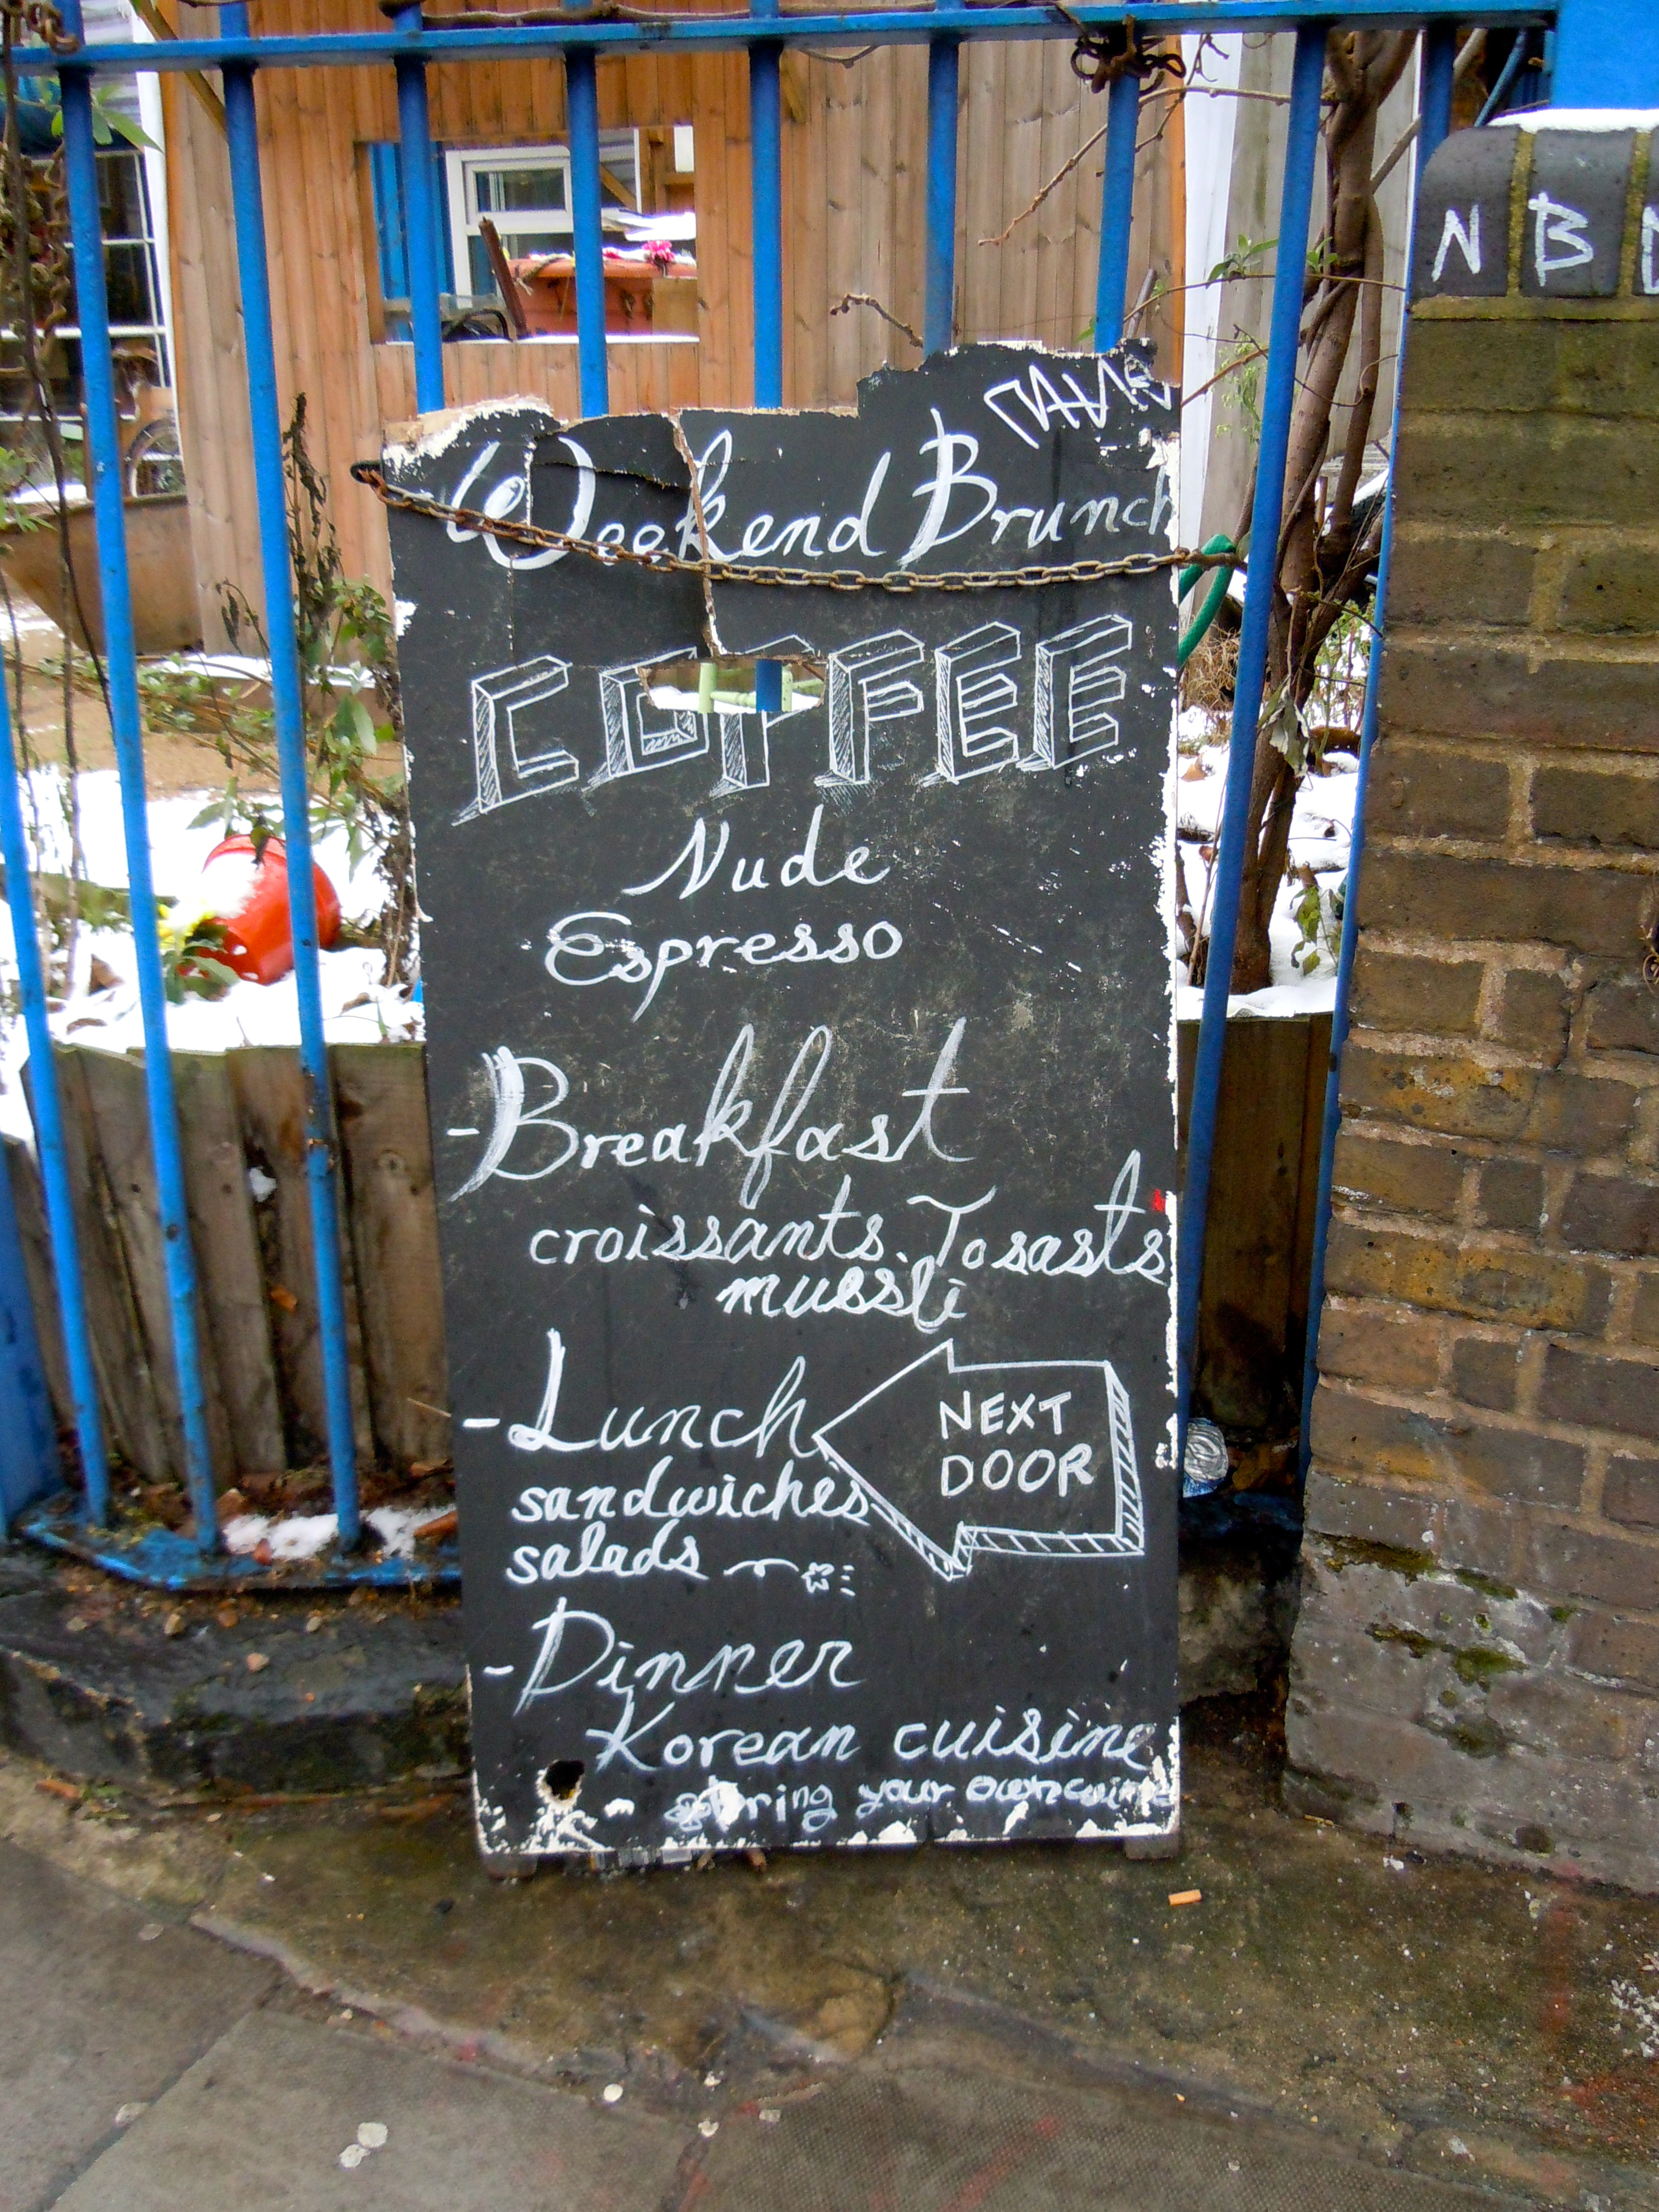 Weekend Brunch
COFFEE
Nude
Espresso
- Breakfast
croissants. Tosasts
muesli
- Lunch
sandwiches
salads
NEXT
DOOR
- Dinner
Korean cuisine
bring your own wine
NB